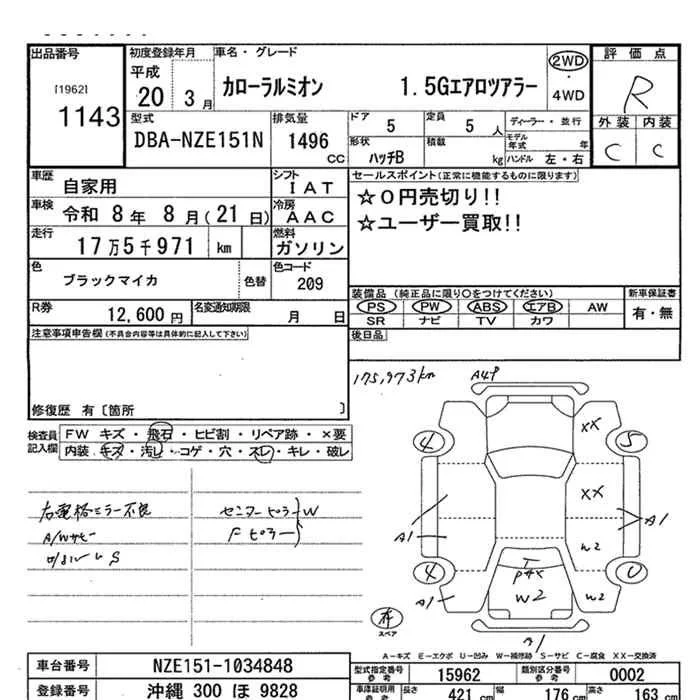 出品番号 初度登録年月 車名・グレード 2WD 評価点
[1962] 平成
1143 20 3月 カローラルミオン 1.5Gエアロツアラー ・ 4WD R
型式 排気量 ドア 定員 ディーラー・並行 外装 内装
DBA-NZE151N 1496 CC 5 5人 モデル年式 年 C C
形状 ハッチB 積載 kg ハンドル 左・右
車歴 自家用 シフト IAT セールスポイント(正常に機能するものに限ります)
車検 令和 8年 8月(21日) 冷房 AAC ☆0円売切り!!
走行 17万5千971 km 燃料 ガソリン ☆ユーザー買取!!
色 ブラックマイカ 色替 色コード 209
装備品(純正品に限り○をつけてください) 新車保証書
R券 12,600円 名変通知期限 月 日 PS PW ABS エアB AW 有・無
SR ナビ TV カワ
注意事項申告欄(不具合内容等は具体的に記入して下さい) 後日品
修復歴 有〔箇所 〕
175,973km
A4P
検査員記入欄 FW キズ・飛石・ヒビ割・リペア跡・×要
内装・キズ・汚レ・コゲ・穴・スレ・キレ・破レ
右電格ミラー不良 センターピラー W
A/Wサビ Fピラー
S
XX
4 5
XX
A1 A1
W2
4
A1 W2 W2
スペア
A-キズ E-エクボ U-凹み W-補修跡 S-サビ C-腐食 XX-交換済
車台番号 NZE151-1034848 型式指定番号 参考 15962 類別区分番号 参考 0002
登録番号 沖縄 300 ほ 9828 車庫証明用 参考 長さ 421 cm 幅 176 cm 高さ 163 cm